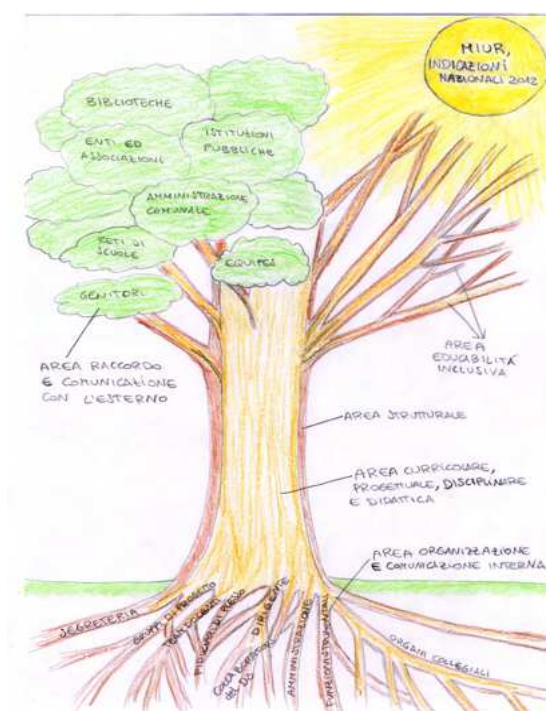 MIUR,
INDICAZIONI
NAZIONALI 2012
BIBLIOTECHE
ENTI ED
ASSOCIAZIONI
ISTITUZIONI
PUBBLICHE
AMMINISTRAZIONE
COMUNALE
RETI DI
SCUOLE
EQUIPES
GENITORI
AREA RACCORDO
E COMUNICAZIONE
CON L'ESTERNO
AREA
EDUCABILITÀ
INCLUSIVA
AREA STRUTTURALE
AREA CURRICOLARE,
PROGETTUALE, DISCIPLINARE
E DIDATTICA
AREA ORGANIZZAZIONE
E COMUNICAZIONE INTERNA
SEGRETERIA
GRUPPI DI PROGETTO
TEAM DOCENTI
FIDUCIARI DI PLESSO
DIRIGENTE
COLLABORATORI
del DS
AMMINISTRAZIONE
FUNZIONI STRUMENTALI
ORGANI COLLEGIALI